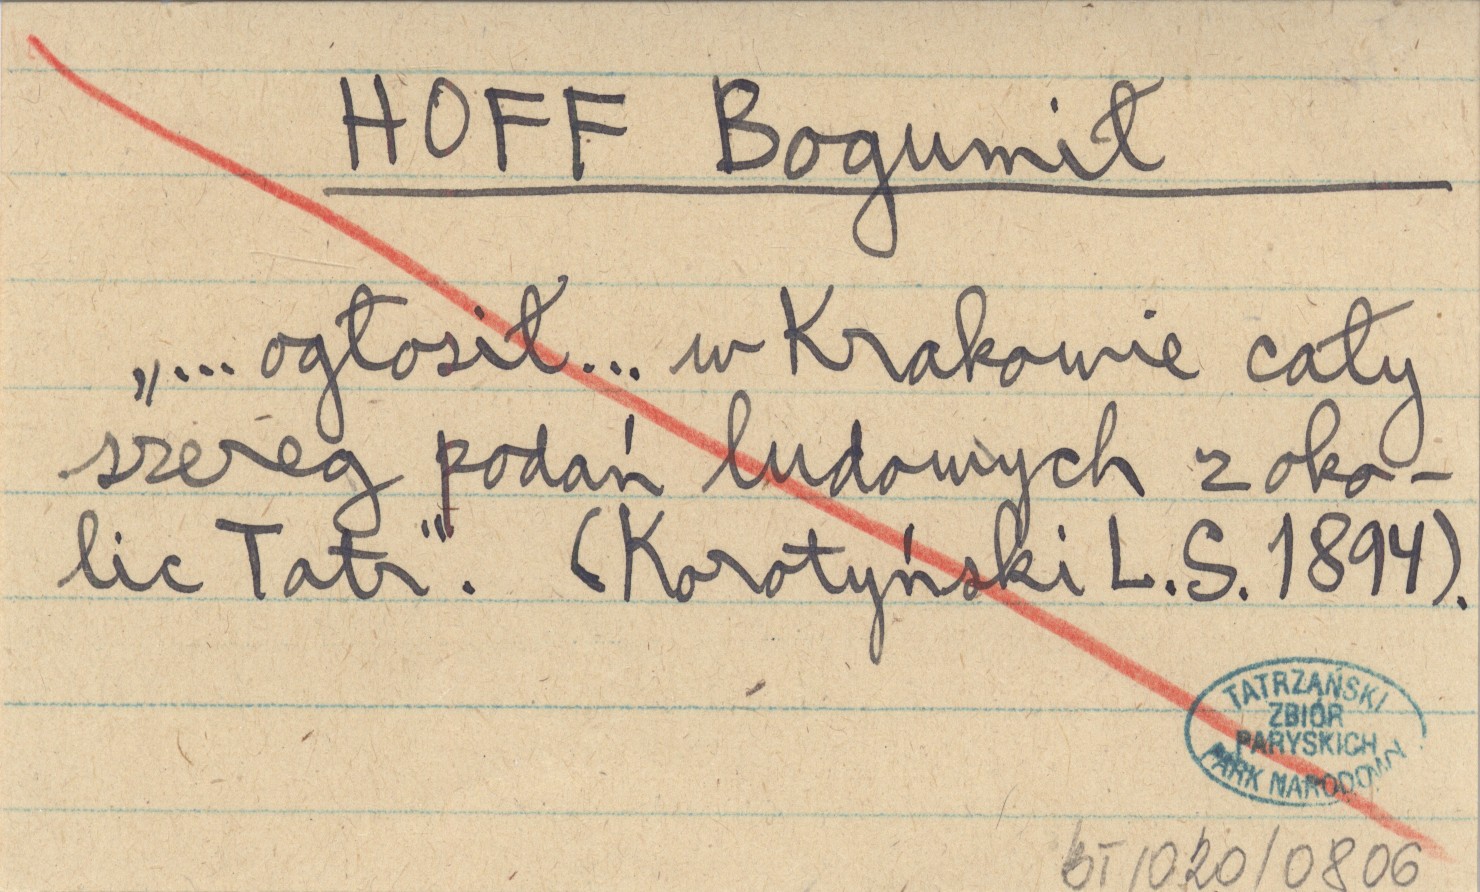 HOFF Bogumił
„... ogłosił... w Krakowie cały
szereg podań ludowych z oko-
lic Tatr". (Korotyński L.S. 1894).
TATRZAŃSKI
ZBIÓR
PARYSKICH
PARK NARODOWY
bT/1020/0806